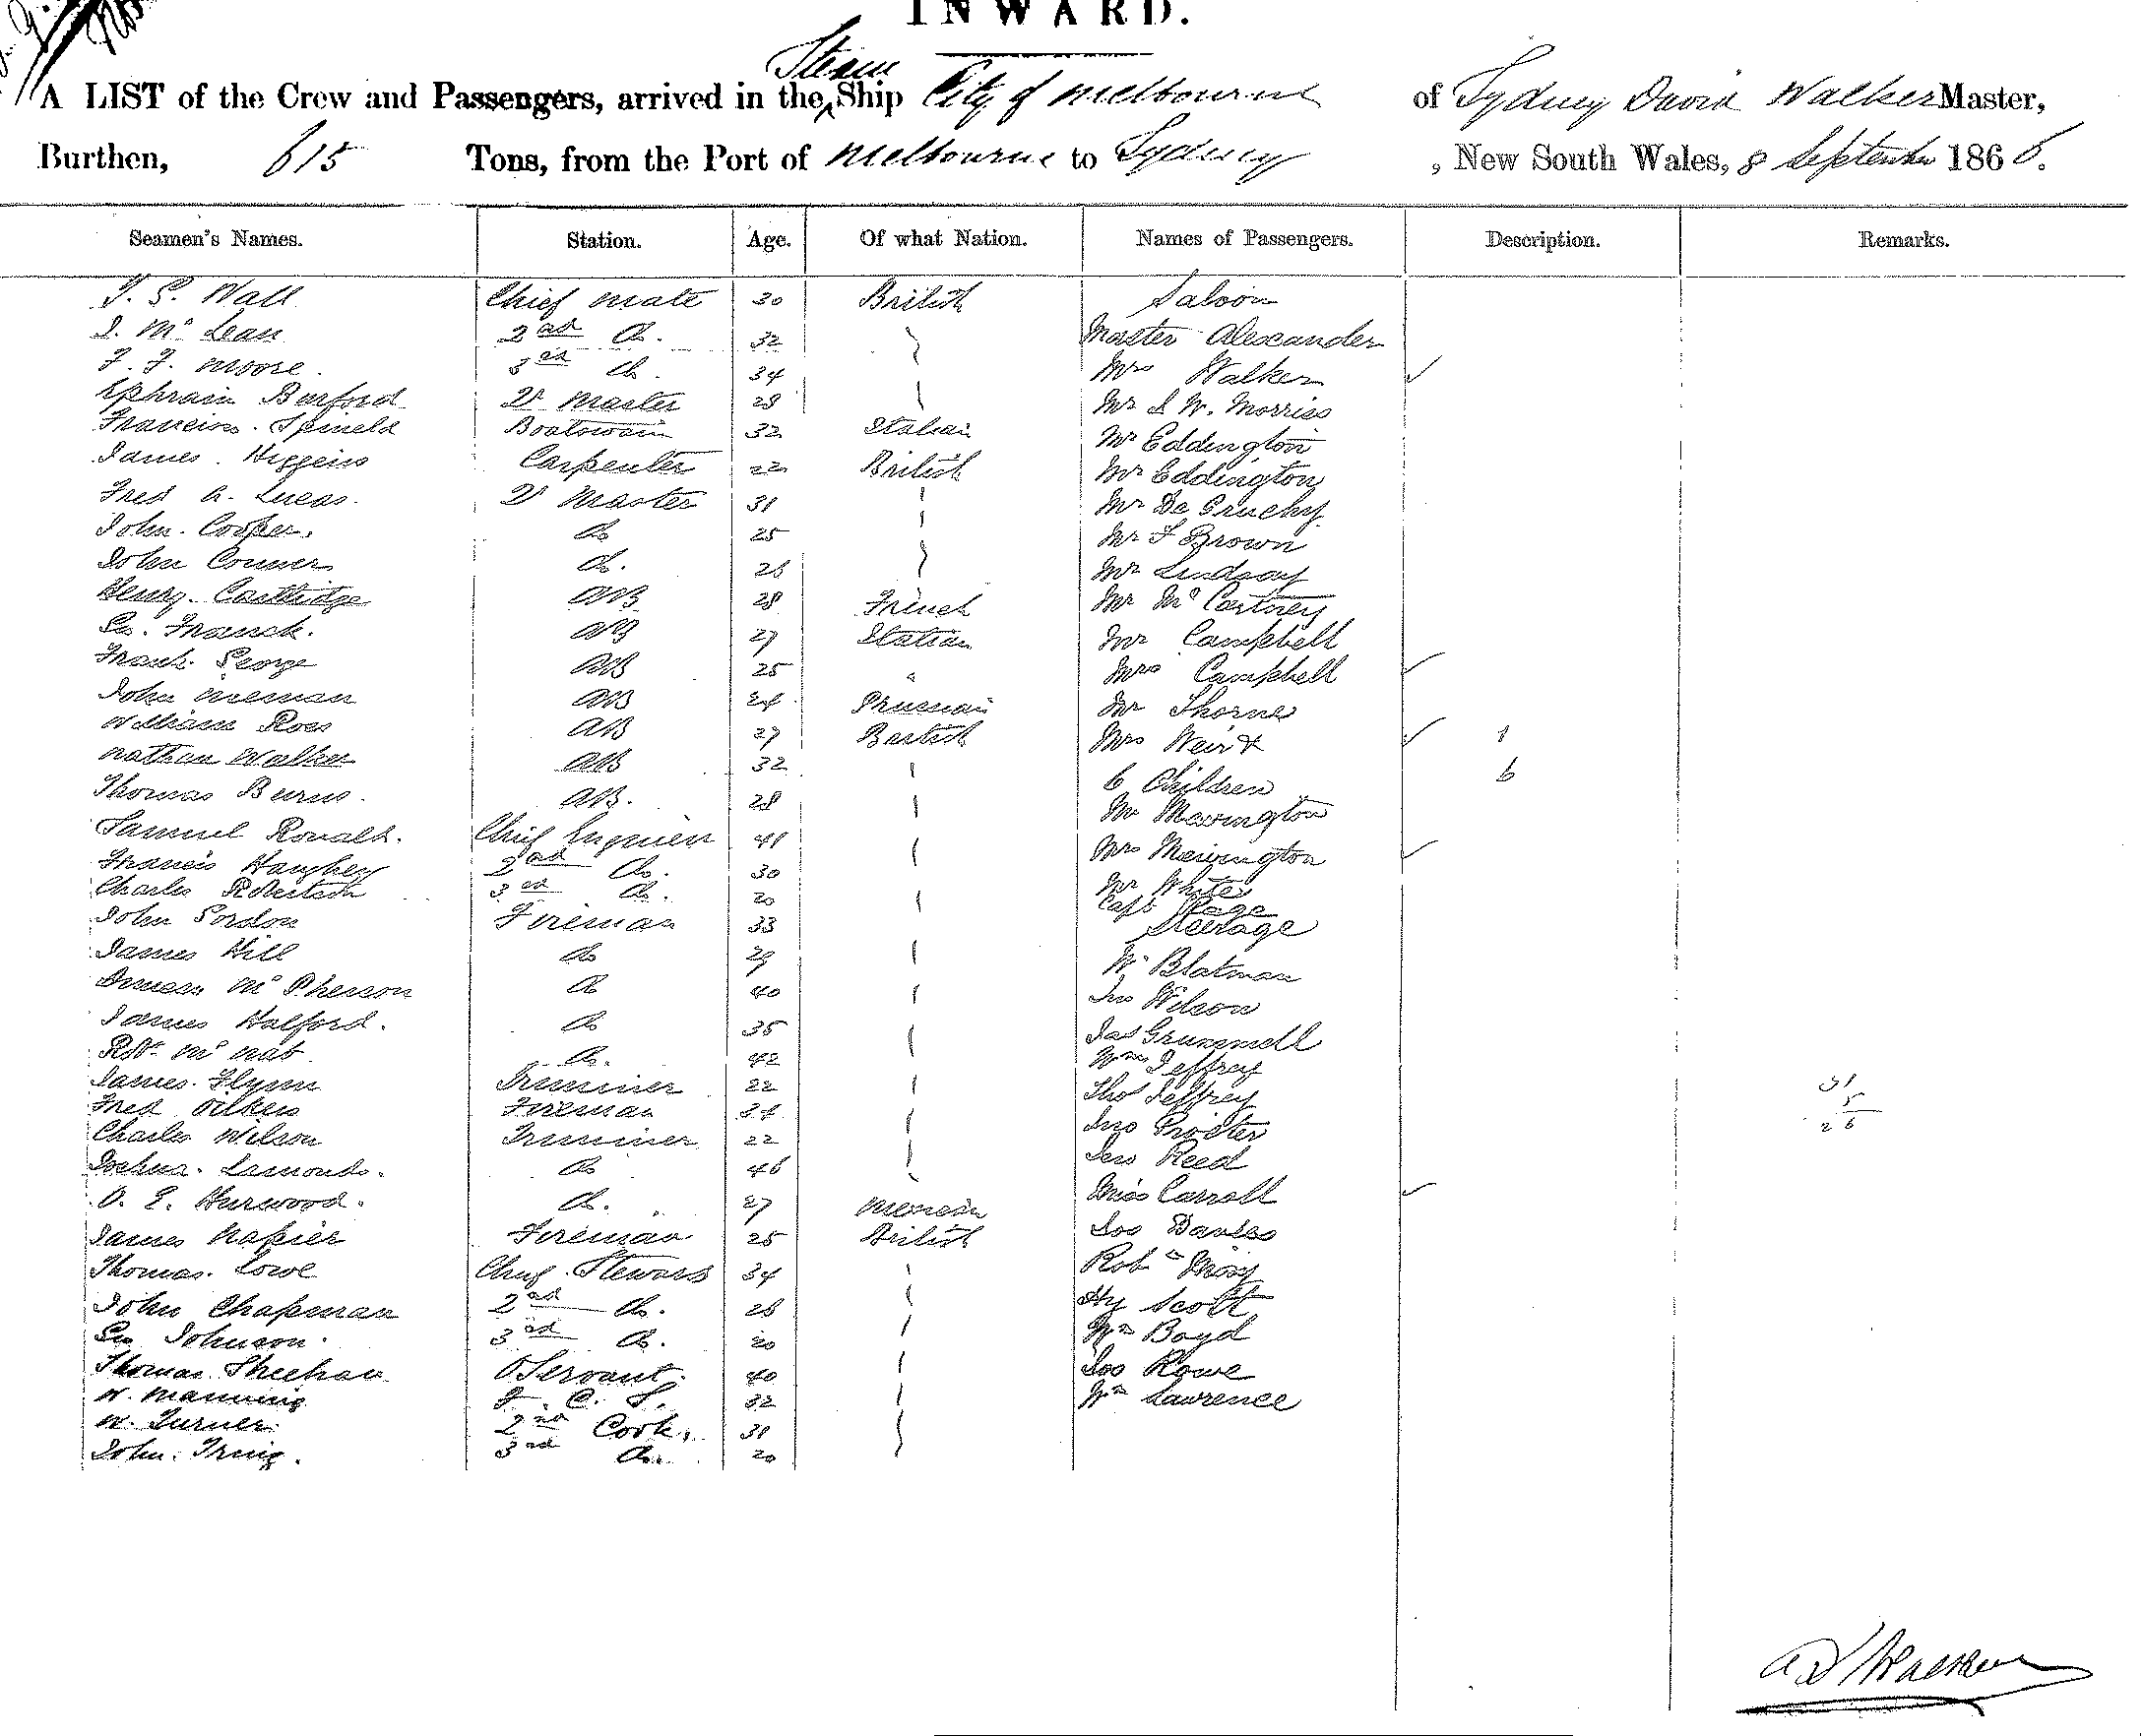 INWARD.
A LIST of the Crew and Passengers, arrived in the Steam Ship City of Melbourne of Sydney David Walker Master,
Burthen, 615 Tons, from the Port of Melbourne to Sydney, New South Wales, 8 September 1866.
Seamen's Names. Station. Age. Of what Nation. Names of Passengers. Description. Remarks.
Wall Chief mate 30 British Saloon
McLean 2nd Do. 32 Master Alexander
Moore. 3rd Do. 34 Mrs Walker ✓
Ephraim Burford Qr Master 29 Mr S W. Morriss
Spineld Boatswain 32 Italian Mr Eddington
James. Higgins Carpenter 22 British Mr Eddington
Fred A. Lucas. Qr Master 31 Mr De Gruchy
John. Cooper. Do 25 Mr F Brown
John Conner Do. 26 Mr Lindsay
Henry. AB 28 French Mr McCartney
Geo. Franck. AB 27 Italian Mr Campbell
Frank. George AB 25 " Mrs Campbell ✓
John AB 24 Prussian Mr Thorne
William Ross AB 27 British Mrs Weir & ✓ 1
Nathan Walker AB 32 6 Children 6
Thomas Burns. AB. 28 Mr
Samuel Ronald. Chief Engineer 41 Mrs ✓
Francis Haughey 2nd Do. 30 Mr White
Charles Robertson 3rd Do. 20 Capt Page
John Gordon Fireman 33 Steerage
James Hill Do 29 W. Blatman
Duncan McPherson Do 40 Jno Wilson
James Halford. Do 35 Jas
Robt. McNab Do. 42 Wm Jeffrey
James. Flynn Trimmer 22 Thos Jeffrey 31
Fred Fireman 34 Jno Procter 5
Charles Wilson Trimmer 22 Reed 26
Joshua. Do 46 Miss Carroll ✓
O. E. Harwood. Do. 27 Jos Davies
James Napier Fireman 25 British Robt
Thomas. Lowe Chief Steward 34 Hy Scott
John Chapman 2nd Do. 26 Wm Boyd
Geo Johnson. 3rd Do. 20 Jos Rowe
Thomas. Sheehan Servant. 40 Wm Lawrence
W. Manning F. C. S. 32
W. Turner 2nd Cook. 31
John. Irvig. 3rd Do. 20
A D Walker